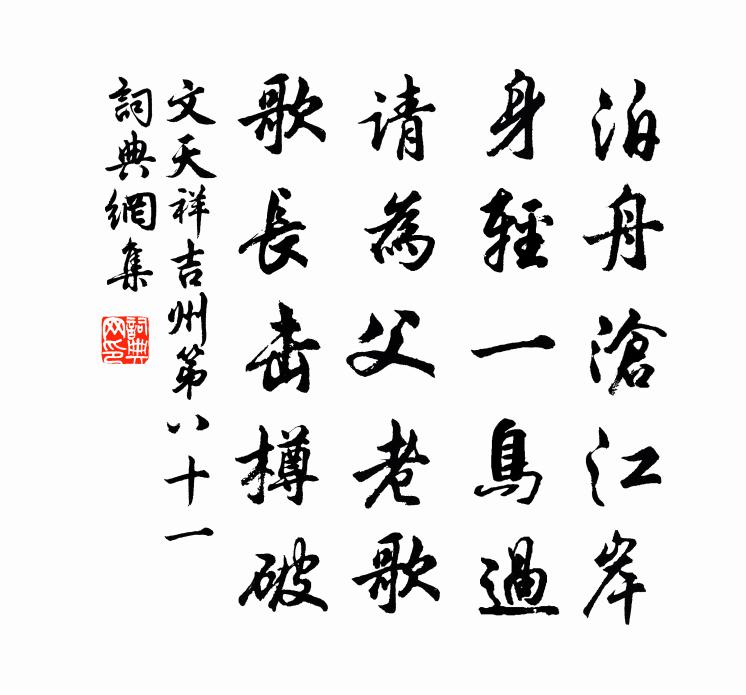 泊舟滄江岸
身輕一鳥過
请為父老歌
歌長击樽破
文天祥吉州第八十一
詞典網集
詞典网印